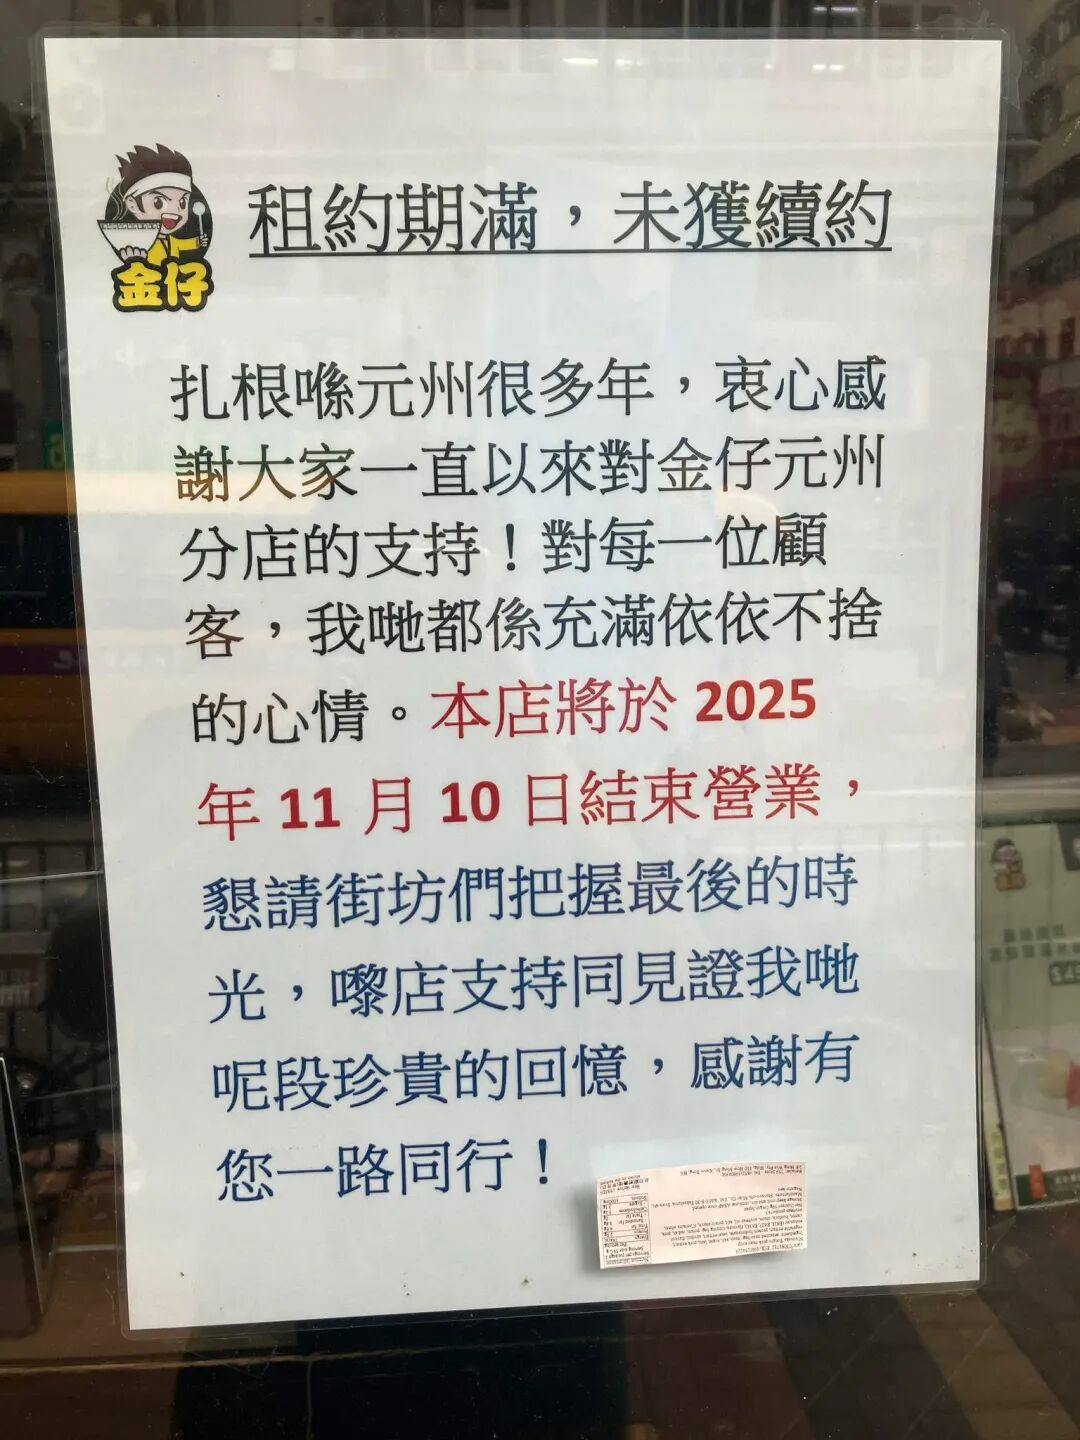 金仔
租約期滿，未獲續約
扎根喺元州很多年，衷心感
謝大家一直以來對金仔元州
分店的支持！對每一位顧
客，我哋都係充滿依依不捨
的心情。本店將於 2025
年 11 月 10 日結束營業，
懇請街坊們把握最後的時
光，嚟店支持同見證我哋
呢段珍貴的回憶，感謝有
您一路同行！